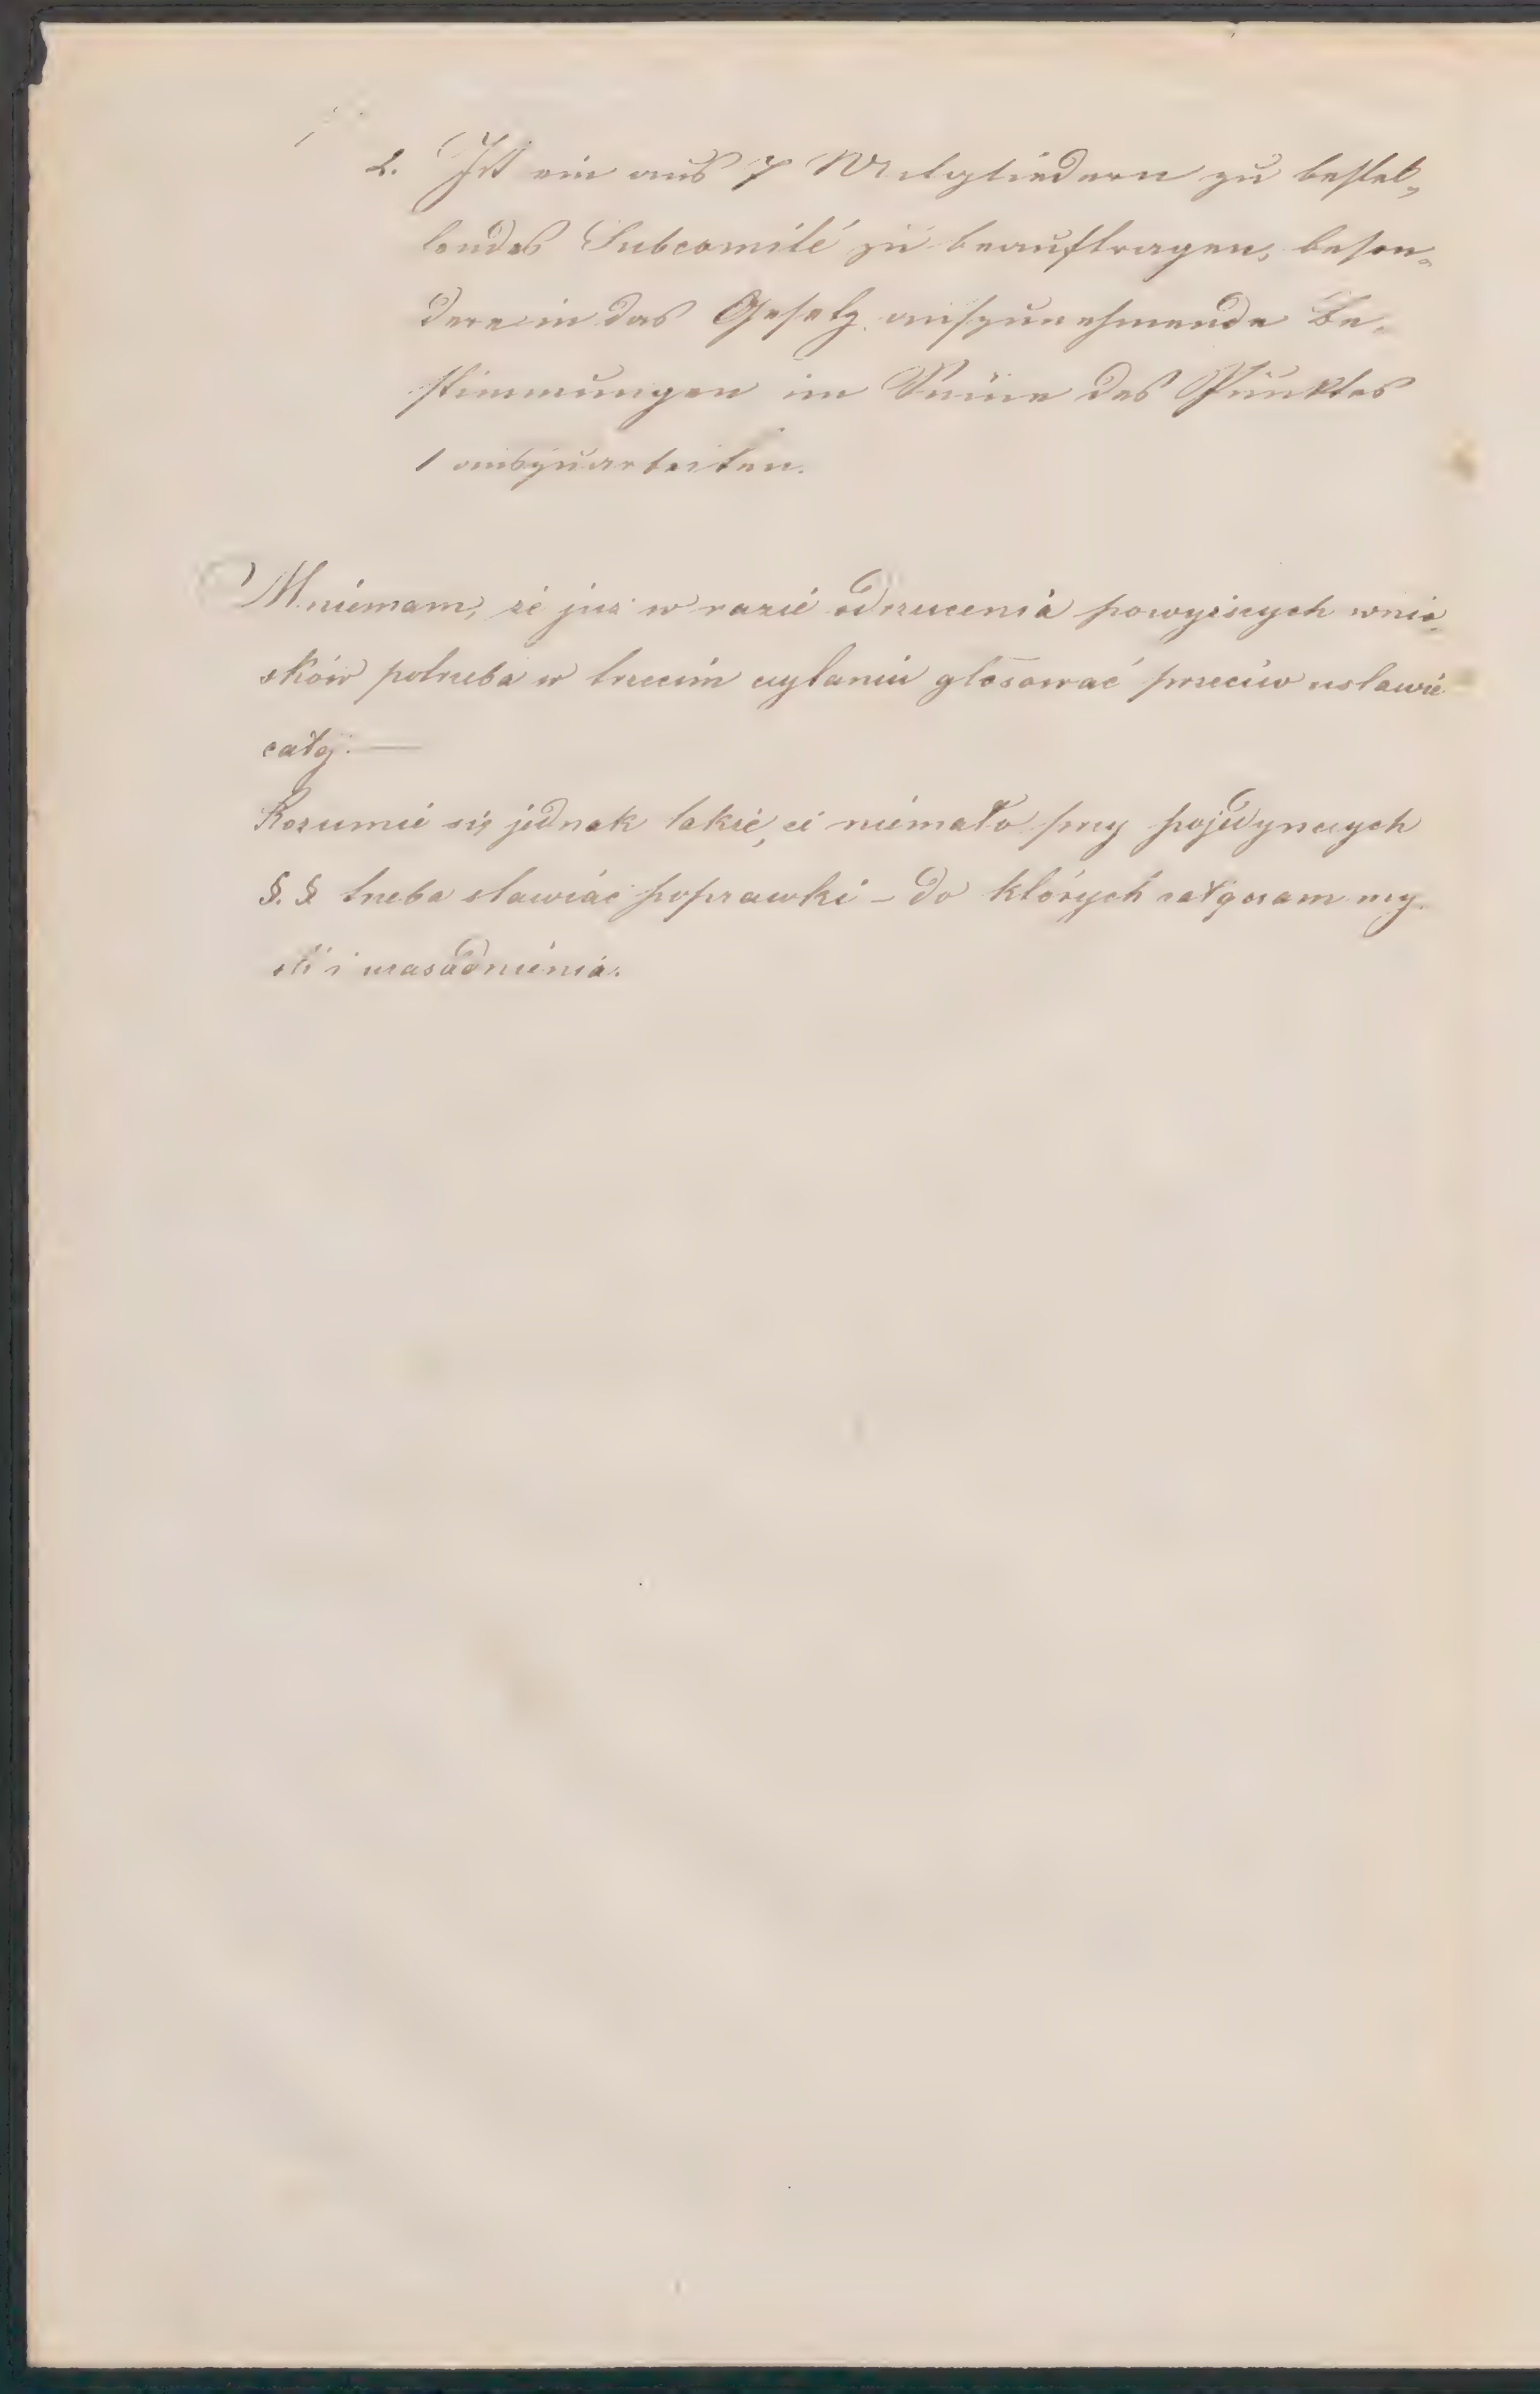 2. Ist ein aus 7 Mitgliedern zu bestel-
lendes Subcomité zu beauftragen, beson-
dere in das Gesetz aufzunehmende Be-
stimmungen im Sinne des Punktes
1 auszuarbeiten.
Mniemam, że już w razie odrzucenia powyższych wnio-
sków potrzeba w trzecim czytaniu głosować przeciw ustawie
całej. —
Rozumie się jednak także, że niemało przy pojedynczych
§. § trzeba stawiać poprawki – do których załączam my-
śli i uzasadnienia.